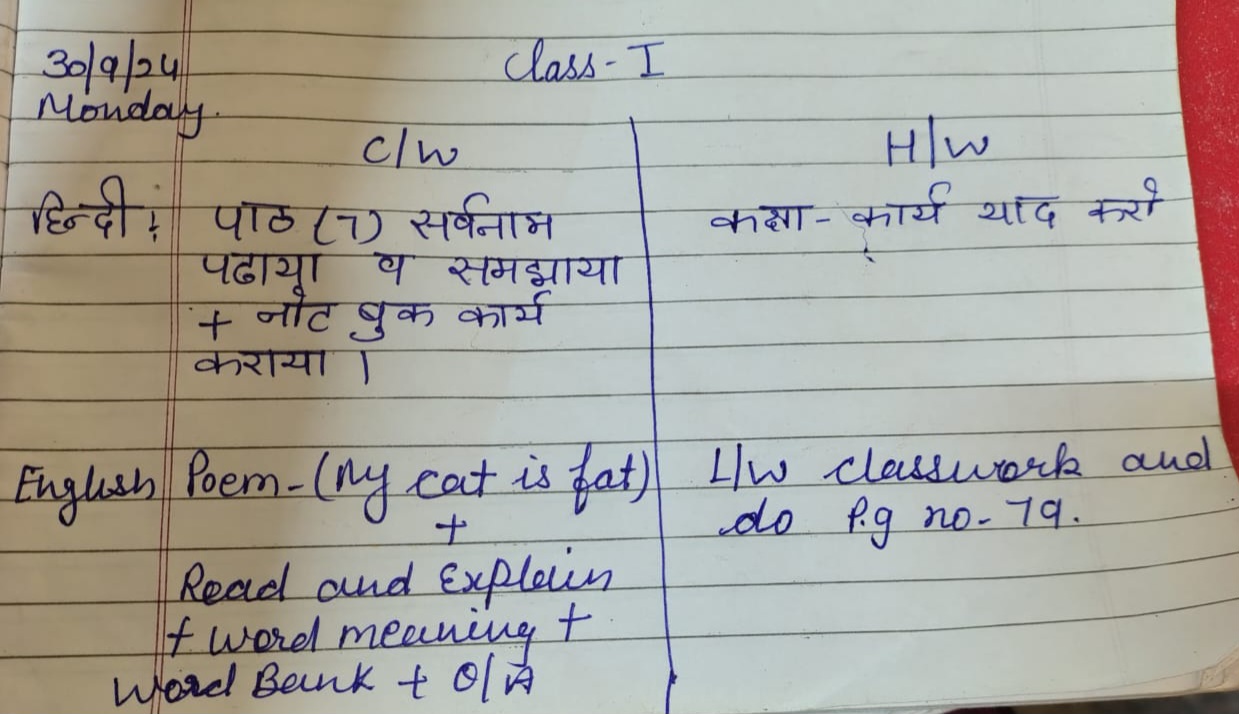 30/9/24 Class - I
Monday.
C/W H/W
हिन्दी : पाठ (7) सर्वनाम कक्षा - कार्य याद करो
पढाया व समझाया
+ नोट बुक कार्य
कराया ।
English Poem - (My cat is fat) L/W classwork and
+ do P.g no - 79.
Read and Explain
+ word meaning +
Word Bank + Q/A